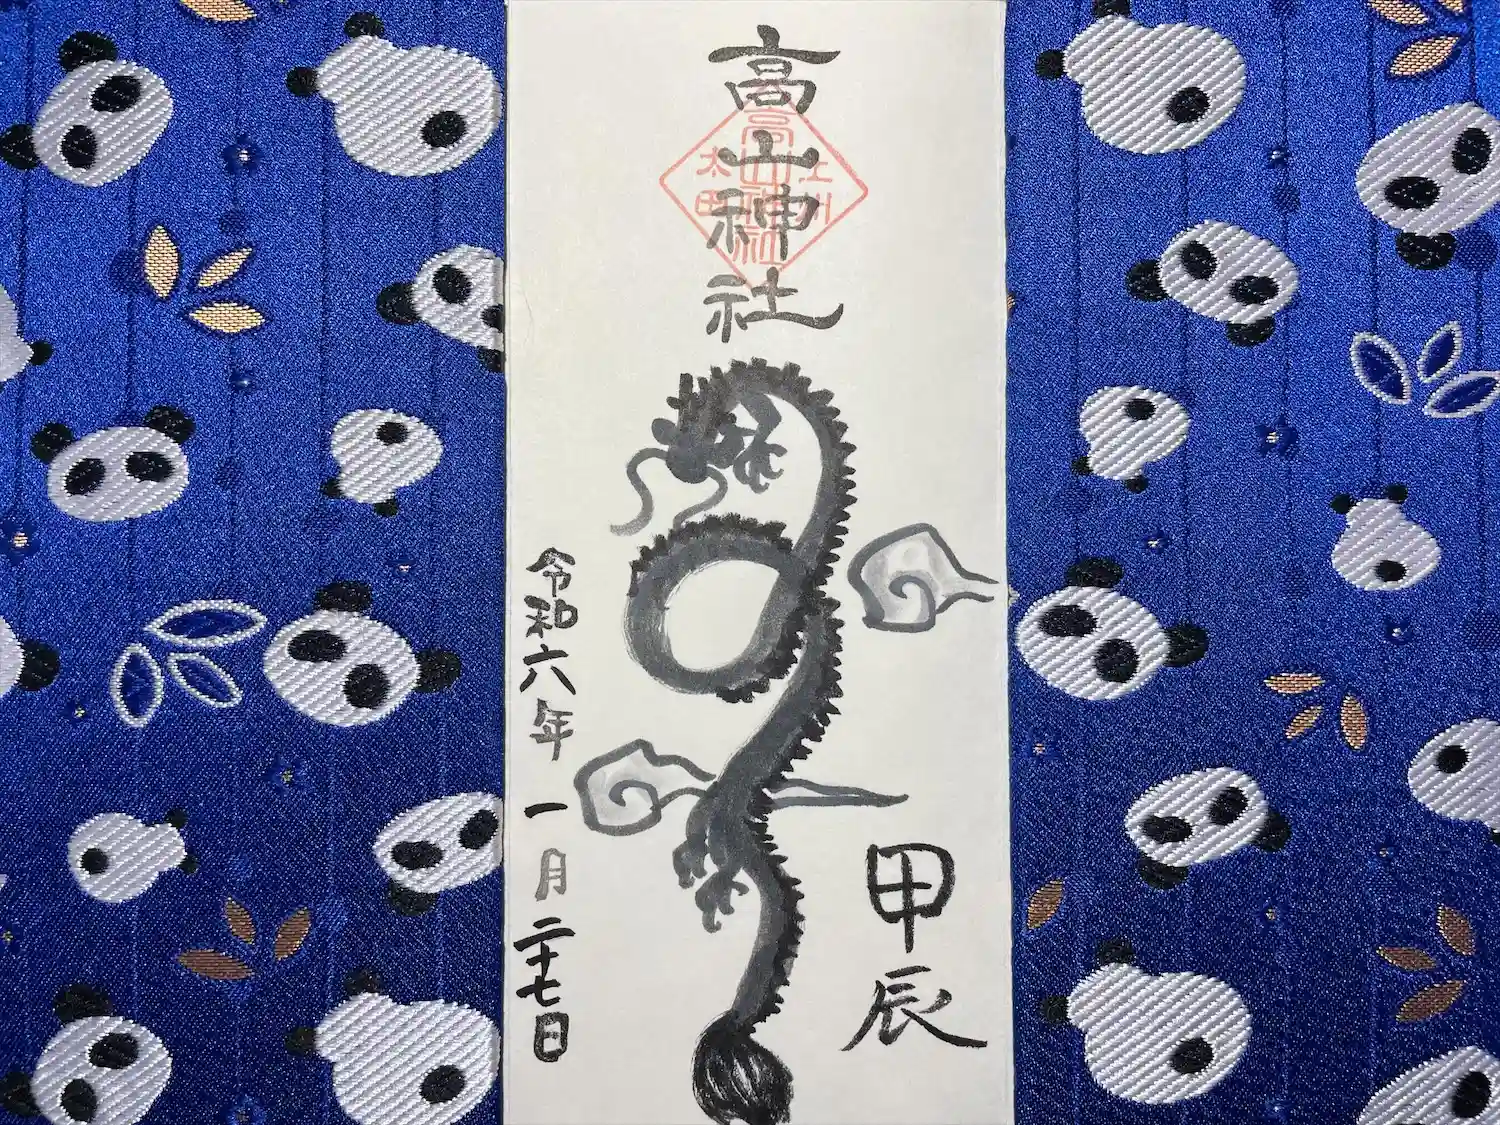 甲辰
高山神社
上州
高山神社
太田
令和六年 一月二十七日